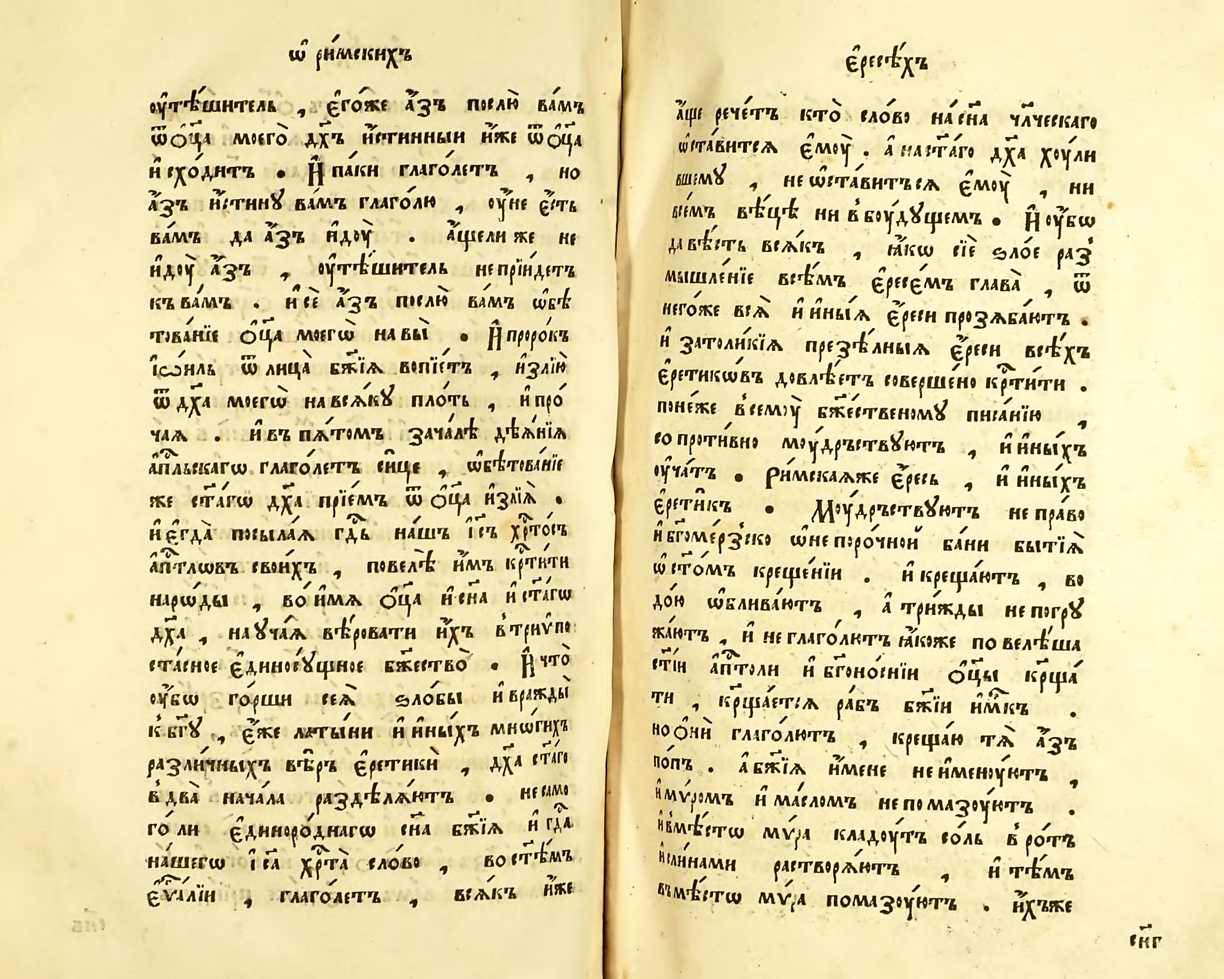 ѡ҆ ри́мскихъ
ᲂу҆тѣ́шитель , є҆го́же а҆́зъ послю̀ ва́мъ
ѿ ѻ҆ц҃а моегѡ̀ дх҃ъ и҆́стинныи и҆́же ѿ ѻ҆ц҃а
и҆схо́дитъ . И҆ па́ки глаго́летъ , но
а҆́зъ и҆́стинꙋ ва́мъ глаго́лю , ᲂу҆́не є҆́сть
ва́мъ да а҆́зъ и҆дꙋ̀ . а҆́щели же не
и҆дꙋ̀ а҆́зъ , ᲂу҆тѣ́шитель не прїи́детъ
къ ва́мъ . и҆ сѐ а҆́зъ послю̀ ва́мъ ѡ҆бѣ
това́нїе ѻ҆ц҃а моегѡ̀ на вы̀ . И҆ проро́къ
і҆ѡи́ль ѿ лица̀ бж҃їѧ вопїе́тъ , и҆злїю̀
ѿ дх҃а моегѡ̀ на всѧ́кꙋ пло́ть , и҆ про́
чаѧ . и҆ въ пѧ́томъ зача́лѣ дѣѧ́нїѧ
а҆пⷭ҇льскагѡ глаго́летъ си́це , ѡ҆бѣтова́нїе
же ст҃а́гѡ дх҃а прїе́мъ ѿ ѻ҆ц҃а и҆злїѧ̀ .
и҆ є҆гда̀ посыла́ѧ гдⷭ҇ь на́шъ і҆с҃ъ хрⷭ҇то́съ
а҆пⷭ҇тлѡвъ свои́хъ , повелѣ̀ и҆̀мъ крⷭ҇ти́ти
нарѡ́ды , во и҆́мѧ ѻ҆ц҃а и҆ сн҃а и҆ ст҃а́гѡ
дх҃а , наꙋча́ѧ вѣ́ровати и҆̀хъ в трїѵпо
ста́сное є҆диносꙋ́щное бж҃ество̀ . И҆ что̀
ᲂу҆́бѡ го́рши сеѧ̀ ѕло́бы и҆ вражды̀
к бг҃ꙋ , є҆́же латы́ни и҆ и҆ны́хъ мнѡ́гихъ
разли́чныхъ вѣ́ръ є҆ретикѝ , дх҃а ст҃а́го
в два̀ нача́ла раздѣлѧ́ютъ . не само
го́ ли є҆диноро́днагѡ сн҃а бж҃їѧ и҆ гдⷭ҇а
на́шегѡ і҆с҃а хрⷭ҇та̀ сло́во , во ст҃ѣ́мъ
є҆ѵⷢ҇а́лїи , глаго́летъ , всѧ́къ и҆́же
є҆ресѣ́хъ
а҆́ще рече́тъ кто̀ сло́во на сн҃а чл҃ческаго
ѡ҆ста́витсѧ є҆мꙋ̀ . а на ст҃а́го дх҃а хꙋ́ли
вшемꙋ , не ѡ҆ста́витъсѧ є҆мꙋ̀ , ни
всемъ вѣ́цѣ ни в бꙋ́дꙋщемъ . И҆ ᲂу҆́бѡ
да вѣ́сть всѧ́къ , ꙗ҆́кѡ сїѐ ѕло́е раз
мышле́нїе всѣ́мъ є҆ресе́мъ глава̀ , ѿ
него́же всѧ̀ и҆ и҆ны́ѧ є҆́реси прозѧба́ютъ .
и҆ за толи́кїѧ презѣ́лныѧ є҆́реси всѣ́хъ
є҆ретикѡ́въ довлѣ́етъ соверше́но крⷭ҇ти́ти .
поне́же всемꙋ̀ бж҃е́ственомꙋ писа́нїю ,
сопроти́вно мꙋ́дръствꙋютъ , и҆ и҆ны́хъ
ᲂу҆ча́тъ . Ри́мскаѧже є҆́ресь , и҆ и҆ны́хъ
є҆рети́къ . Мꙋ́дръствꙋютъ не пра́во
и҆ бг҃оме́рзско ѡ҆ непоро́чной ба́ни бытїѧ̀
ѡ҆ ст҃о́мъ креще́нїи . и҆ креща́ютъ , во
до́ю ѡ҆блива́ютъ , а три́жды не погрꙋ
жа́ютъ , и҆ не глаго́лютъ ꙗ҆́коже повелѣ́ша
ст҃і́и а҆пⷭ҇толи и҆ бг҃оно́снїи ѻ҆ц҃ы крⷭ҇ща́
ти , крⷭ҇ща́етсѧ ра́бъ бж҃їи и҆́мⷬ҇къ .
но ѻ҆нѝ глаго́лютъ , креща́ю тѧ̀ а҆́зъ
по́пъ . а бж҃їѧ и҆́мене не и҆менꙋ́ютъ ,
и҆ мѵ́ромъ и҆ ма́сломъ не помазꙋ́ютъ .
и҆ вмѣ́стѡ мѵ́ра кладꙋ́тъ со́ль в ро́тъ
и҆ сли́нами растворѧ́ютъ , и҆ тѣ́мъ
въмѣ́стѡ мѵ́ра помазꙋ́ютъ . и҆́хъже
сн҃г